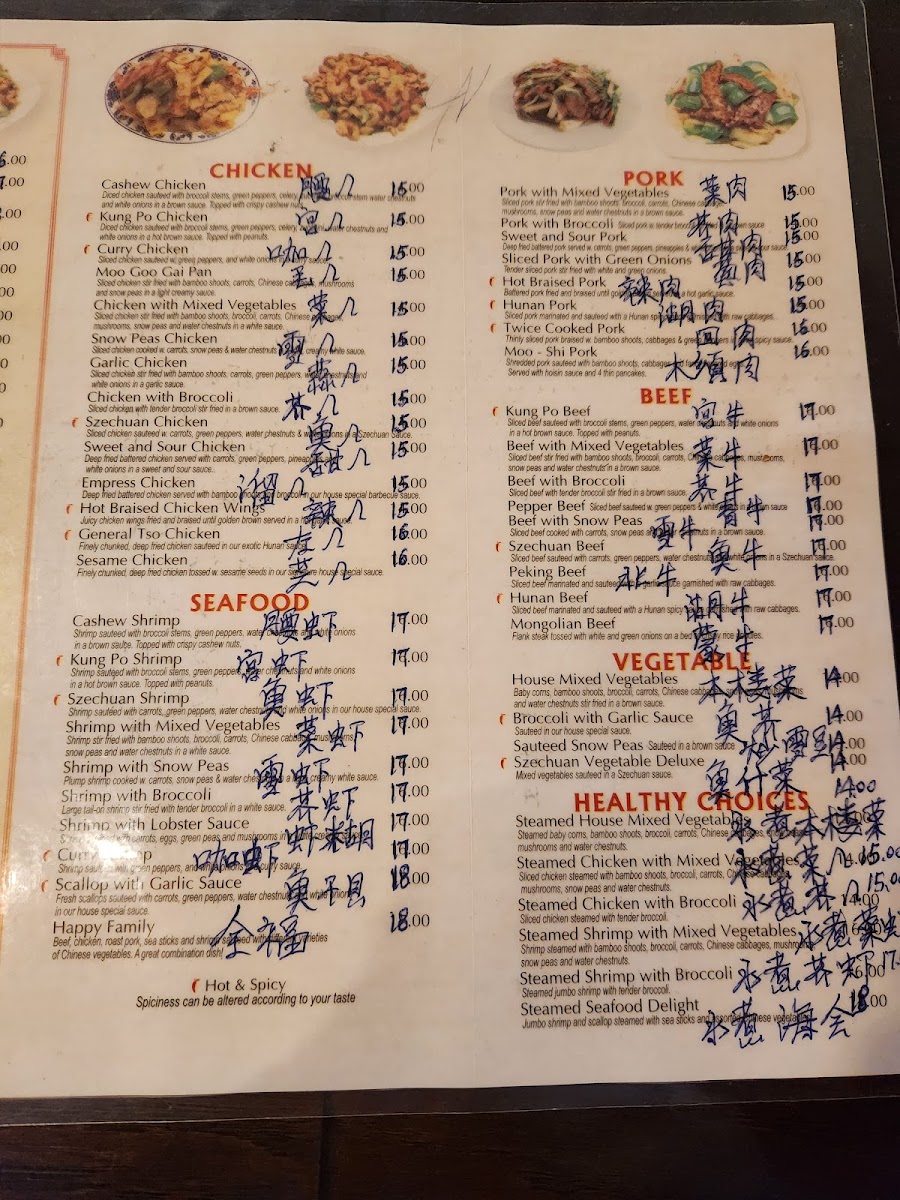 6.00
7.00
.00
.00
00
00
00
00
0
0
CHICKEN
Cashew Chicken 腰几 15.00
Diced chicken sauteed with broccoli stems, green peppers, celery, water chestnuts
and white onions in a brown sauce. Topped with crispy cashew nuts.
Kung Po Chicken 宮几 15.00
Diced chicken sauteed with broccoli stems, green peppers, celery, water chestnuts and
white onions in a hot brown sauce. Topped with peanuts.
Curry Chicken 咖几 15.00
Sliced chicken sauteed w. green peppers, and white onions curry sauce.
Moo Goo Gai Pan 毛几 15.00
Sliced chicken stir fried with bamboo shoots, carrots, Chinese cabbage, mushrooms
and snow peas in a light creamy sauce.
Chicken with Mixed Vegetables 菜几 15.00
Sliced chicken stir fried with bamboo shoots, broccoli, carrots, Chinese cabbage,
mushrooms, snow peas and water chestnuts in a white sauce.
Snow Peas Chicken 雪几 15.00
Sliced chicken cooked w. carrots, snow peas & water chestnuts creamy white sauce.
Garlic Chicken 蒜几 15.00
Sliced chicken stir fried with bamboo shoots, carrots, green peppers, water chestnuts and
white onions in a garlic sauce.
Chicken with Broccoli 芥几 15.00
Sliced chicken with tender broccoli stir fried in a brown sauce.
Szechuan Chicken 魚几 15.00
Sliced chicken sauteed w. carrots, green peppers, water chestnuts & white onions in a Szechuan Sauce.
Sweet and Sour Chicken 甜几 15.00
Deep fried battered chicken served with carrots, green peppers, pineapple &
white onions in a sweet and sour sauce.
Empress Chicken 溜几 15.00
Deep fried battered chicken served with bamboo shoots & broccoli in our house special barbecue sauce.
Hot Braised Chicken Wings 辣几 15.00
Juicy chicken wings fried and braised until golden brown served in a hot sauce.
General Tso Chicken 左几 16.00
Finely chunked, deep fried chicken sauteed in our exotic Hunan sauce.
Sesame Chicken 芝几 16.00
Finely chunked, deep fried chicken tossed w. sesame seeds in our signature house special sauce.
SEAFOOD
Cashew Shrimp 腰虾 17.00
Shrimp sauteed with broccoli stems, green peppers, water chestnuts and white onions
in a brown sauce. Topped with crispy cashew nuts.
Kung Po Shrimp 宮虾 17.00
Shrimp sauteed with broccoli stems, green peppers, water chestnuts and white onions
in a hot brown sauce. Topped with peanuts.
Szechuan Shrimp 魚虾 17.00
Shrimp sauteed with carrots, green peppers, water chestnuts and white onions in our house special sauce.
Shrimp with Mixed Vegetables 菜虾 17.00
Shrimp stir fried with bamboo shoots, broccoli, carrots, Chinese cabbage, mushrooms,
snow peas and water chestnuts in a white sauce.
Shrimp with Snow Peas 雪虾 17.00
Plump shrimp cooked w. carrots, snow peas & water chestnuts in a light creamy white sauce.
Shrimp with Broccoli 芥虾 17.00
Large tail-on shrimp stir fried with tender broccoli in a white sauce.
Shrimp with Lobster Sauce 虾 17.00
with carrots, eggs, green peas and mushrooms in
Curry Shrimp 咖虾 17.00
Shrimp sauteed with green peppers, and white onions curry sauce.
Scallop with Garlic Sauce 魚干貝 18.00
Fresh scallops sauteed with carrots, green peppers, water chestnuts and white onions
in our house special sauce.
Happy Family 全福 18.00
Beef, chicken, roast pork, sea sticks and shrimp sauteed with different varieties
of Chinese vegetables. A great combination dish!
Hot & Spicy
Spiciness can be altered according to your taste
PORK
Pork with Mixed Vegetables 菜肉 15.00
Sliced pork stir fried with bamboo shoots, broccoli, carrots, Chinese cabbage,
mushrooms, snow peas and water chestnuts in a brown sauce.
Pork with Broccoli 芥肉 15.00
Sliced pork w. tender broccoli stir fried in a brown sauce
Sweet and Sour Pork 甜肉 15.00
Deep fried battered pork served w. carrots, green peppers, pineapples &
Sliced Pork with Green Onions 蔥肉 15.00
Tender sliced pork stir fried with white and green onions.
Hot Braised Pork 辣肉 15.00
Battered pork fried and braised until golden served in a hot garlic sauce.
Hunan Pork 湖肉 15.00
Sliced pork marinated and sauteed with a Hunan spicy garnished with raw cabbages.
Twice Cooked Pork 回肉 16.00
Thinly sliced pork braised w. bamboo shoots, cabbages & green peppers in a spicy sauce.
Moo - Shi Pork 木須肉 16.00
Shredded pork sauteed with bamboo shoots, cabbages and eggs.
Served with hoisin sauce and 4 thin pancakes.
BEEF
Kung Po Beef 宮牛 17.00
Sliced beef sauteed with broccoli stems, green peppers, water chestnuts and white onions
in a hot brown sauce. Topped with peanuts.
Beef with Mixed Vegetables 菜牛 17.00
Sliced beef stir fried with bamboo shoots, broccoli, carrots, Chinese cabbages, mushrooms,
snow peas and water chestnuts in a brown sauce.
Beef with Broccoli 芥牛 17.00
Sliced beef with tender broccoli stir fried in a brown sauce.
Pepper Beef 青牛 17.00
Sliced beef sauteed w. green peppers & white onions in a brown sauce
Beef with Snow Peas 雪牛 17.00
Sliced beef cooked with carrots, snow peas & water chestnuts in a brown sauce.
Szechuan Beef 魚牛 17.00
Sliced beef sauteed with carrots, green peppers, water chestnuts and white onions in a Szechuan sauce.
Peking Beef 北牛 17.00
Sliced beef marinated and sauteed with a garlic sauce garnished with raw cabbages.
Hunan Beef 湖牛 17.00
Sliced beef marinated and sauteed with a Hunan spicy garnished with raw cabbages.
Mongolian Beef 蒙牛 17.00
Flank steak tossed with white and green onions on a bed of crispy rice noodles.
VEGETABLE
House Mixed Vegetables 本楼菜 14.00
Baby corns, bamboo shoots, broccoli, carrots, Chinese cabbage, mushrooms
and water chestnuts stir fried in a brown sauce.
Broccoli with Garlic Sauce 魚芥 14.00
Sauteed in our house special sauce.
Sauteed Snow Peas 炒雪豆 14.00
Sauteed in a brown sauce
Szechuan Vegetable Deluxe 魚什菜 14.00
Mixed vegetables sauteed in a Szechuan sauce.
HEALTHY CHOICES
Steamed House Mixed Vegetables 水煮本楼菜 14.00
Steamed baby corns, bamboo shoots, broccoli, carrots, Chinese cabbages,
mushrooms and water chestnuts.
Steamed Chicken with Mixed Vegetables 水煮菜几 15.00
Sliced chicken steamed with bamboo shoots, broccoli, carrots, Chinese cabbages,
mushrooms, snow peas and water chestnuts.
Steamed Chicken with Broccoli 水煮芥几 15.00
Sliced chicken steamed with tender broccoli.
Steamed Shrimp with Mixed Vegetables 水煮菜虾
Shrimp steamed with bamboo shoots, broccoli, carrots, Chinese cabbages, mushrooms,
snow peas and water chestnuts.
Steamed Shrimp with Broccoli 水煮芥虾 17.
Steamed jumbo shrimp with tender broccoli.
Steamed Seafood Delight 水煮海会 18.00
Jumbo shrimp and scallop steamed with sea sticks and assorted Chinese vegetables.